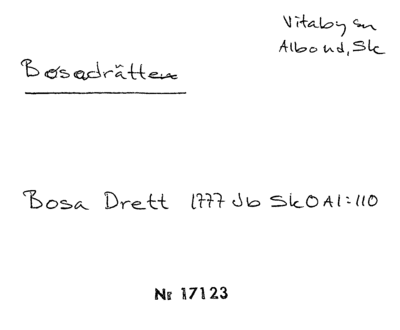 Vitaby sn
Albo hd, Sk
Bosadrätten
Bosa Drett 1777 Jb Sk O A1:110
Nr 17123